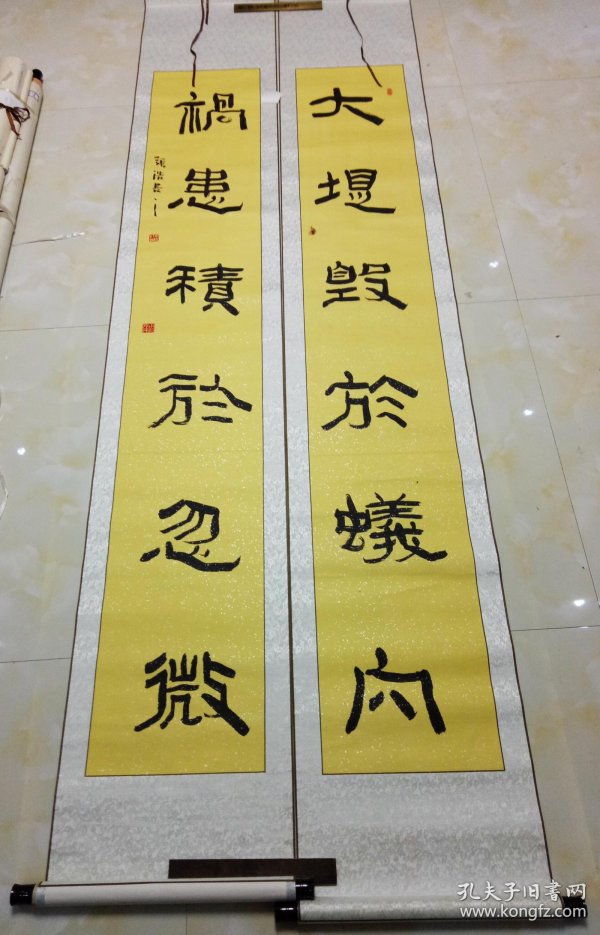 大堤毀於蟻穴
禍患積於忽微
孔夫子旧书网
www.kongfz.com